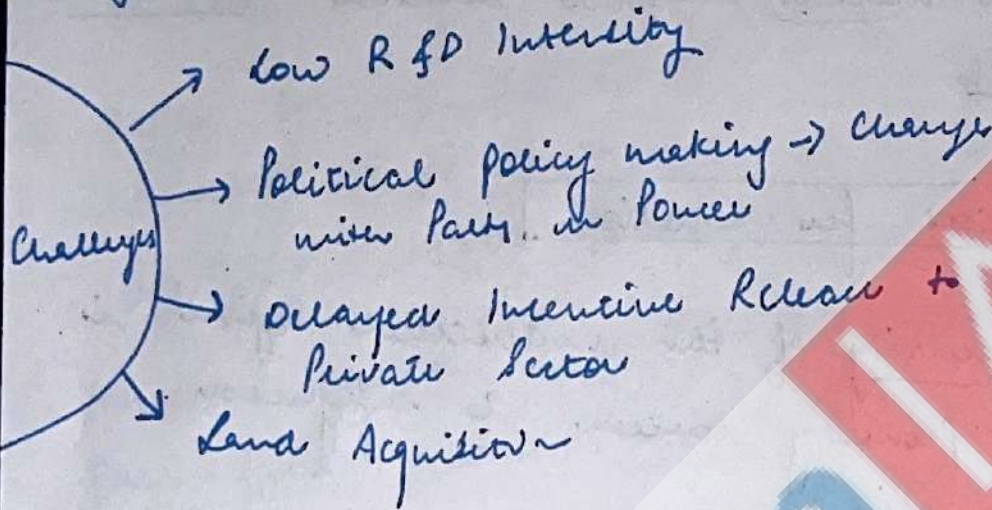 Low R&D Intensity
Political policy making → Changes
with Party in Power
Challenges
Delayed Incentive Release to
Private Sector
Land Acquisition